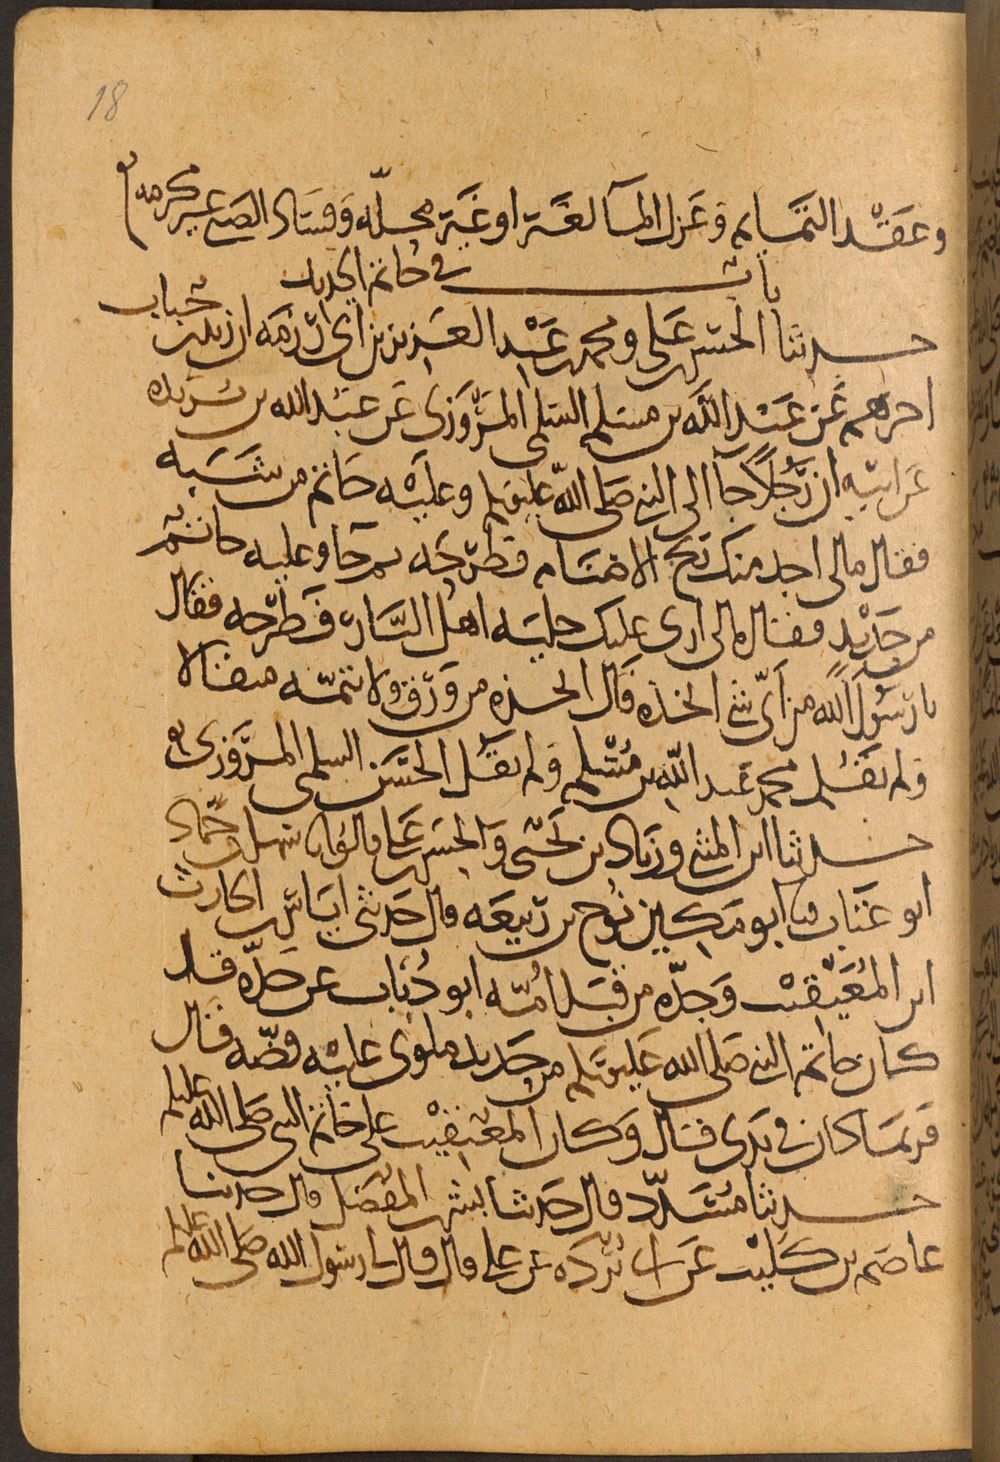 18
وعقد التمايم وعزل المآ لغيره او غير محله وفساد الصبي غير محرمه
باب في خاتم الحديد
حدثنا الحسن بن علي ومحمد بن عبد العزيز بن ابي رزمه ان زيد بن حباب
اخبرهم عن عبد الله بن مسلم السلمي المروزي عن عبد الله بن بريده
عن ابيه ان رجلا جآ الى النبي صلى الله عليه وسلم وعليه خاتم من شبه
فقال مالي اجد منك ريح الاصنام فطرحه ثم جآ وعليه خاتم
من حديد فقال مالي ارى عليك حليه اهل النار فطرحه فقال
يا رسول الله من اي شي اتخذه قال اتخذه من ورق ولا تتمه مثقالا
ولم يقل محمد عبد الله بن مسلم ولم يقل الحسن السلمي المروزي
حدثنا ابن المثنى وزياد بن يحيى والحسن بن علي قالوا نا سهل بن حماد
ابو عتاب نا ابو مكين نوح بن ربيعه قال حدثني اياس بن الحارث
ابن المعيقيب وجده من قبل امه ابو ذباب عن جده قال
كان خاتم النبي صلى الله عليه وسلم من حديد ملوي عليه فضه قال
فربما كان في يدي قال وكان المعيقيب على خاتم النبي صلى الله عليه وسلم
حدثنا مسدد قال حدثنا بشر بن المفضل قال حدثنا
عاصم بن كليب عن ابي برده عن علي قال قال لي رسول الله صلى الله عليه وسلم